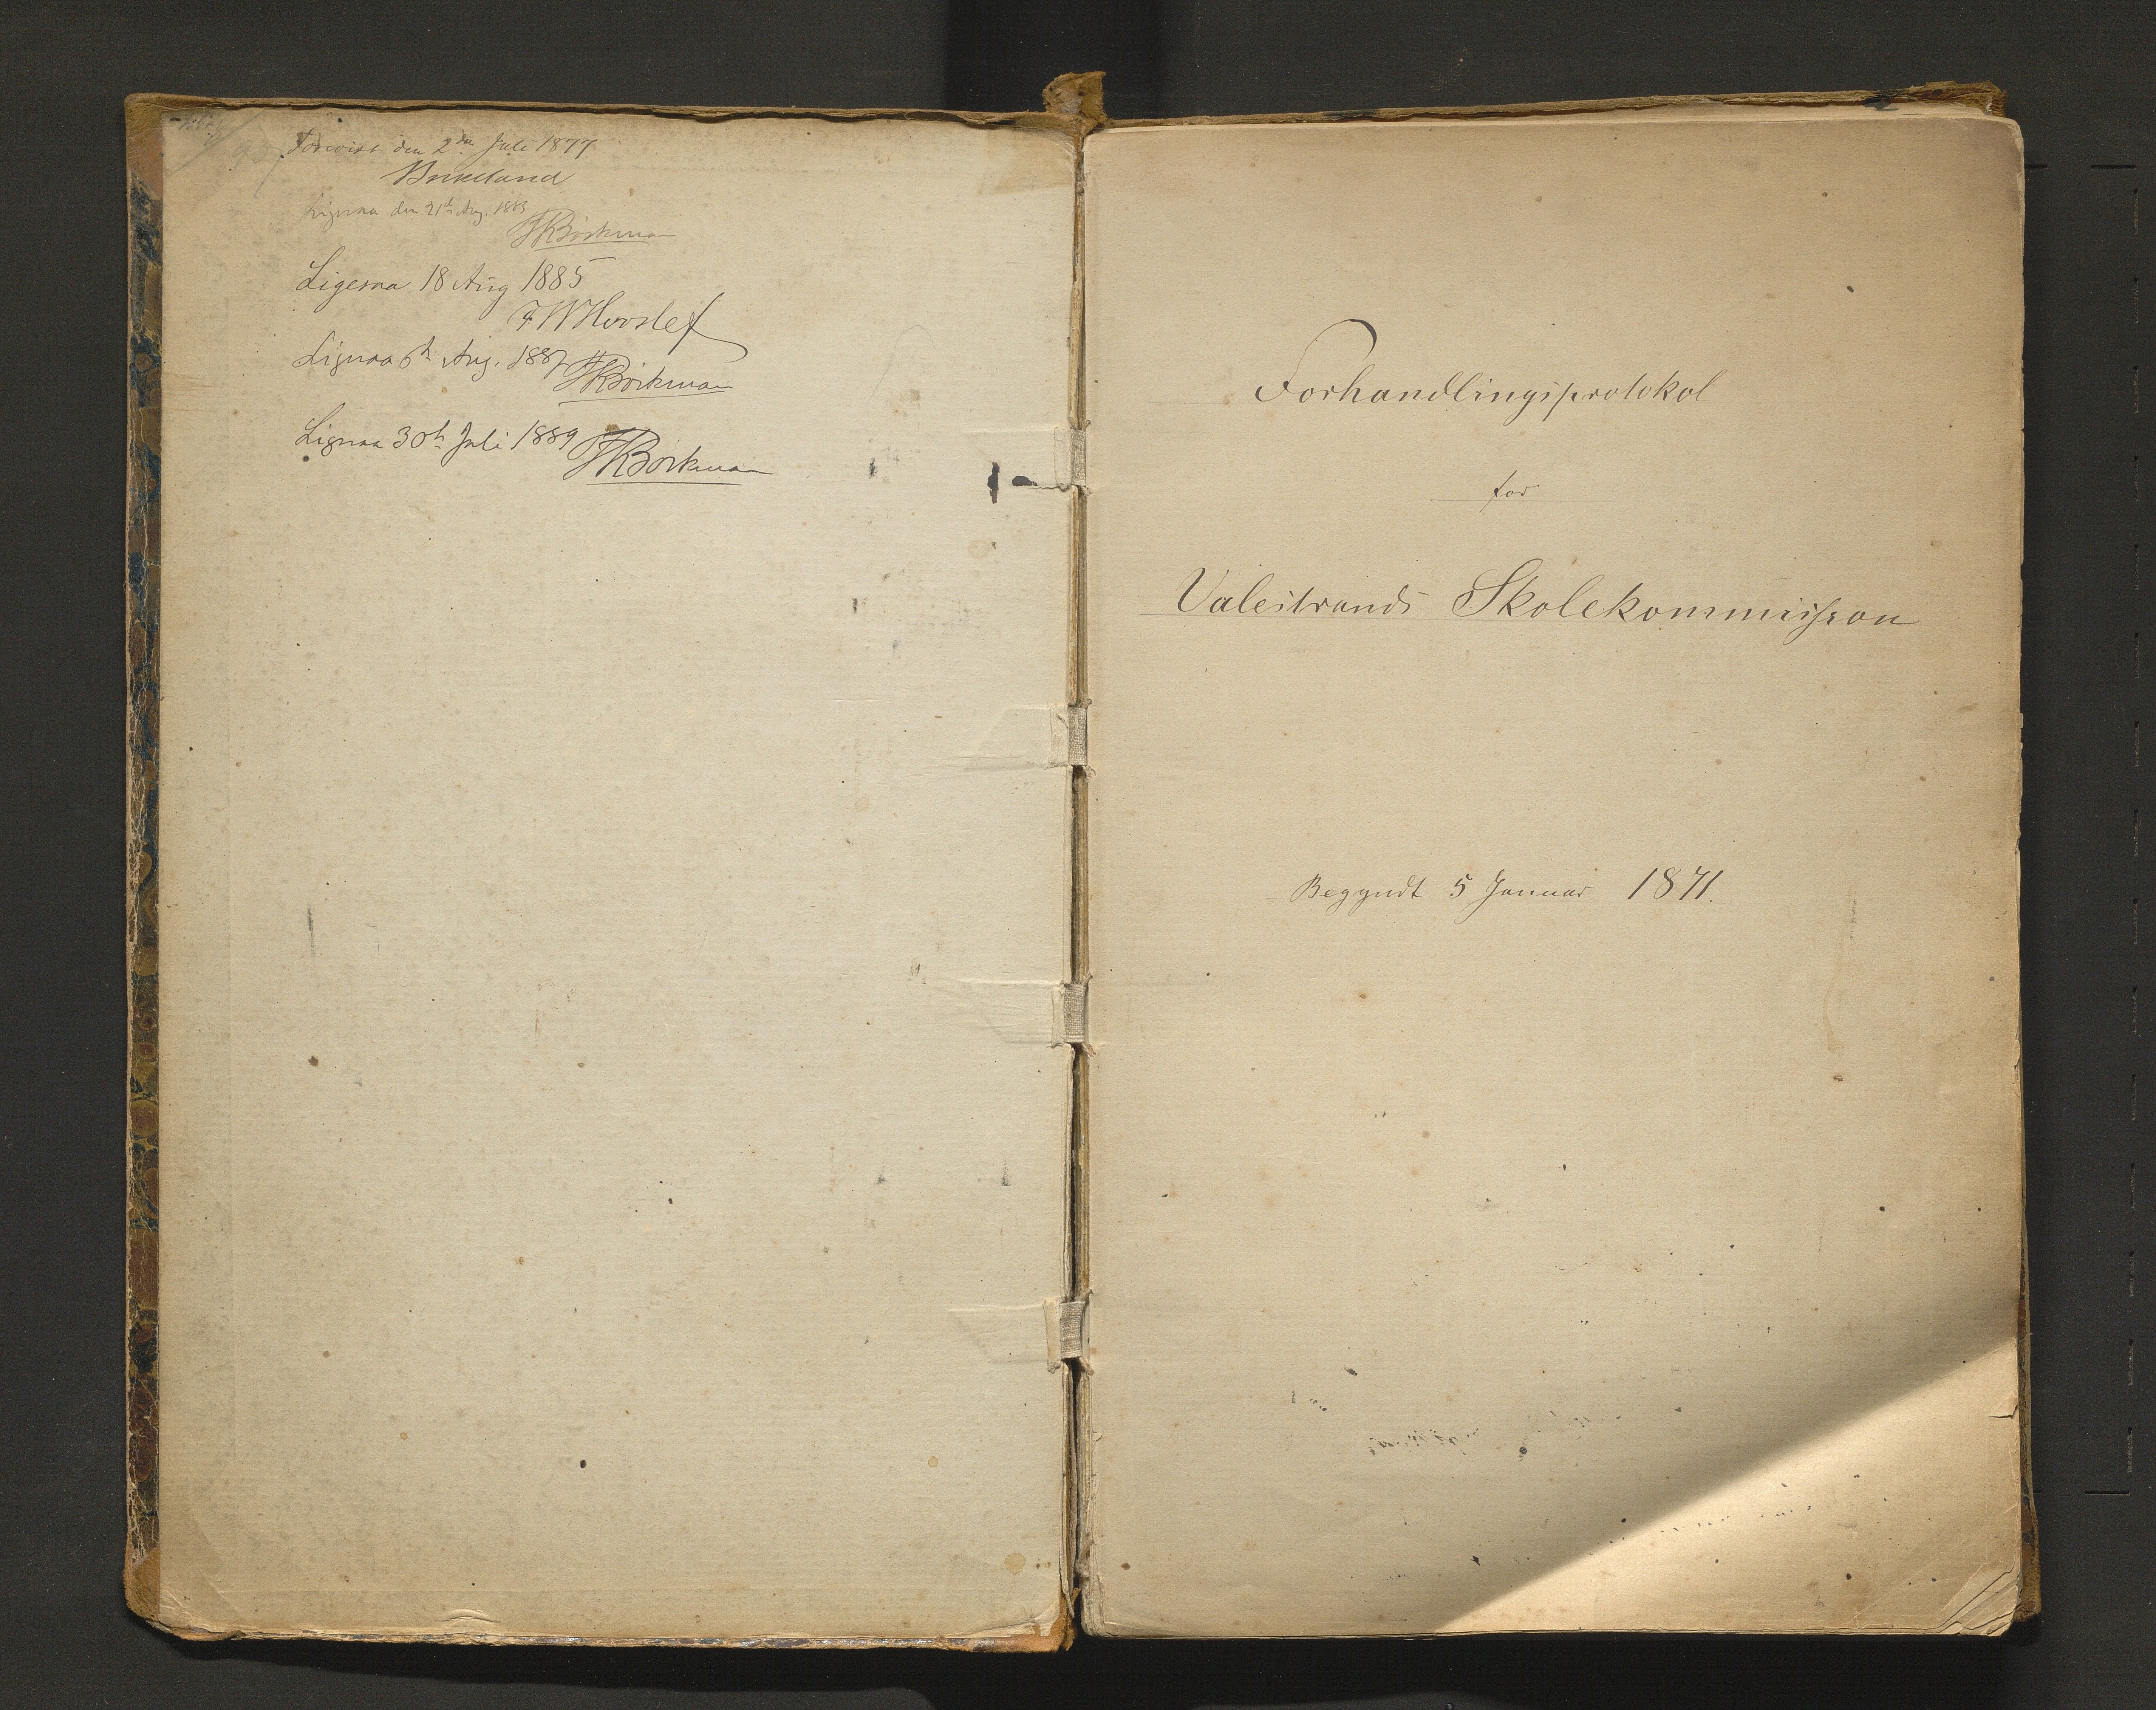 Forevist den 2den Juli 1877
Birkeland
Ligesaa den 21de Aug. 1883
JRBörkman
Ligesaa 18 Aug 1885
FWHvoslef
Ligesaa 6te Aug. 1887 JRBörkman
Ligesaa 30te Juli 1889 JRBörkman
Forhandlingsprotokol
for
Valestrands Skolekommission
Begyndt 5 Januar 1871.